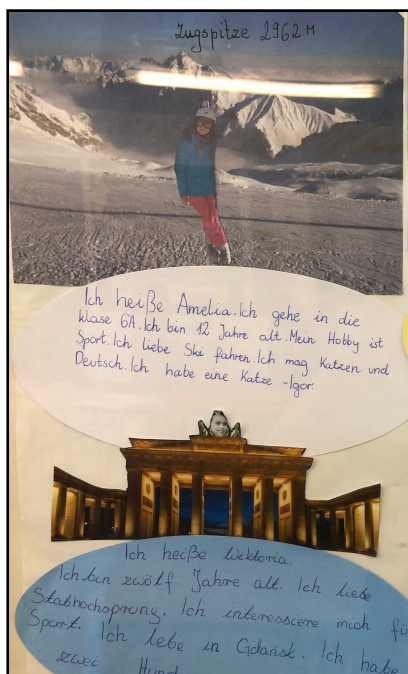 Zugspitze 2962 M
Ich heiße Amelia. Ich gehe in die
klase 6A. Ich bin 12 Jahre alt. Mein Hobby ist
Sport. Ich liebe Ski fahren. Ich mag Katzen und
Deutsch. Ich habe eine Katze - Igor.
Ich heiße Wiktoria.
Ich bin zwölf Jahre alt. Ich liebe
Stabhochsprung. Ich interessiere mich fü
Sport. Ich lebe in Gdańsk. Ich habe
zwei Hund